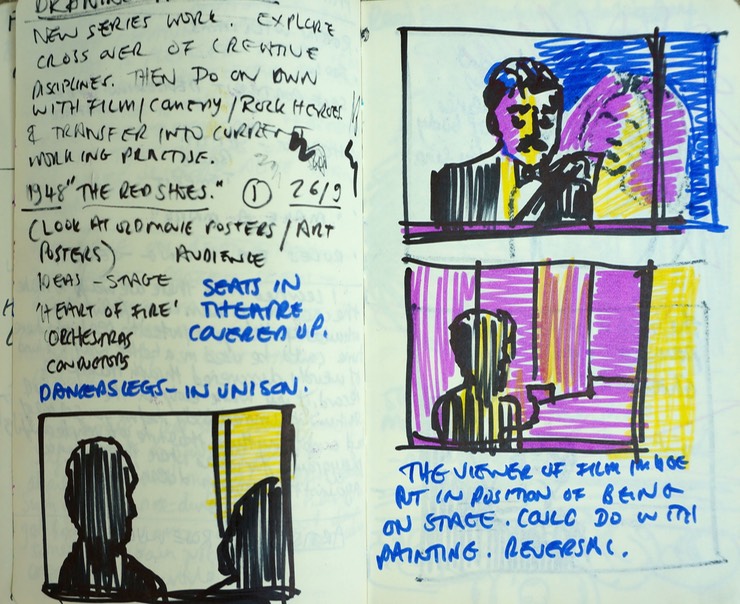 DRAWING
NEW SERIES WORK. EXPLORE
CROSS OVER OF CREATIVE
DISCIPLINES. THEN DO ON OWN
WITH FILM/COMEDY/ROCK HEROES
& TRANSFER INTO CURRENT
WORKING PRACTISE.
1948 "THE RED SHOES." ① 26/9
(LOOK AT OLD MOVIE POSTERS/ART
POSTERS) AUDIENCE
IDEAS - STAGE
'HEART OF FIRE'
ORCHESTRAS
CONDUCTORS
SEATS IN
THEATRE
COVERED UP.
DANCERS LEGS - IN UNISON.
THE VIEWER OF FILM IMAGE
PUT IN POSITION OF BEING
ON STAGE. COULD DO WITH
PAINTING. REVERSAL.